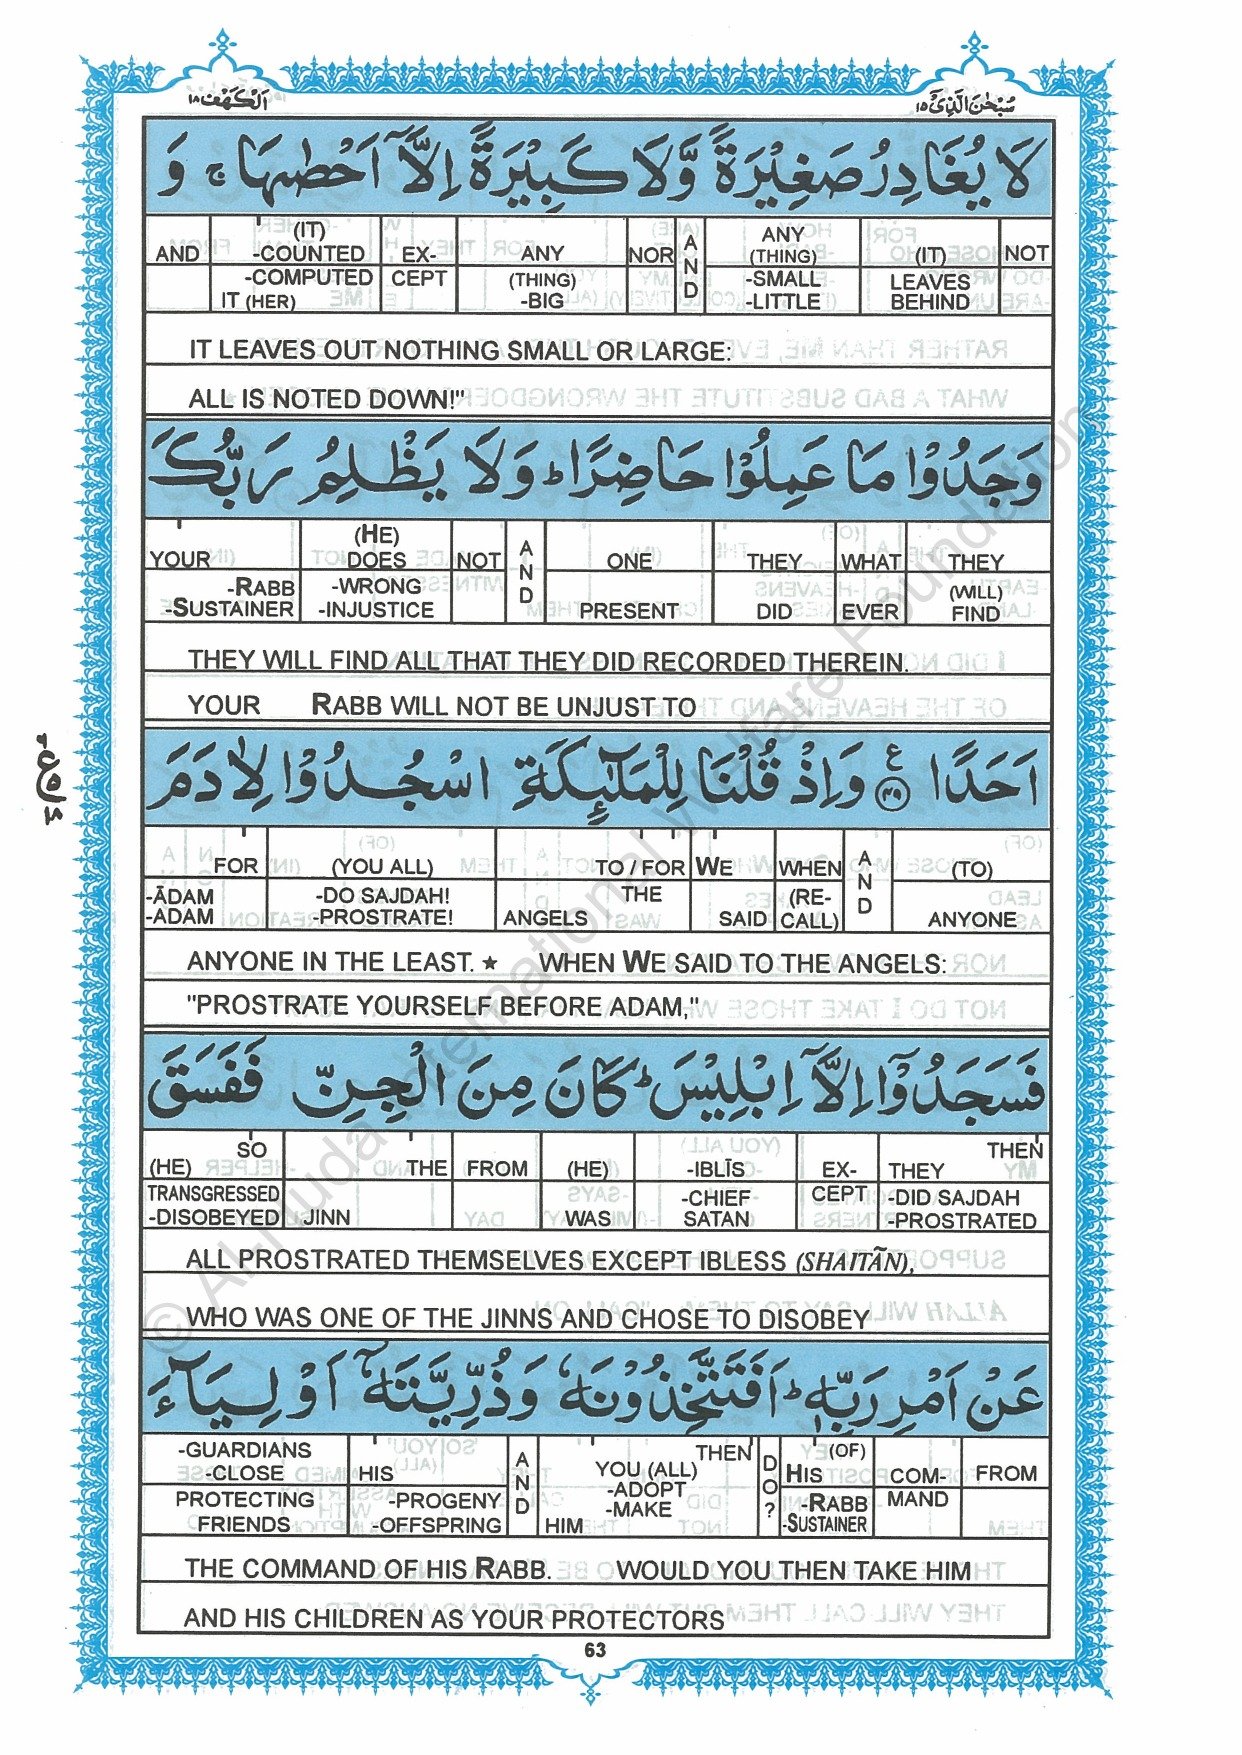 الْكَهْف ١٨
سُبْحٰنَ الَّذِیْٓ ١٥
لَا يُغَادِرُ صَغِيْرَةً وَّلَا كَبِيْرَةً اِلَّآ اَحْصٰىهَا ۚ وَ
AND (IT) -COUNTED -COMPUTED IT (HER) EX-CEPT ANY (THING) -BIG NOR AND ANY (THING) -SMALL -LITTLE (IT) LEAVES BEHIND NOT
IT LEAVES OUT NOTHING SMALL OR LARGE:
ALL IS NOTED DOWN!"
وَجَدُوْا مَا عَمِلُوْا حَاضِرًا ؕ وَلَا يَظْلِمُ رَبُّكَ
YOUR -RABB -SUSTAINER (HE) DOES -WRONG -INJUSTICE NOT AND ONE PRESENT THEY DID WHAT EVER THEY (WILL) FIND
THEY WILL FIND ALL THAT THEY DID RECORDED THEREIN.
YOUR RABB WILL NOT BE UNJUST TO
اَحَدًا ۟ ع ٤٩ وَاِذْ قُلْنَا لِلْمَلٰٓئِكَةِ اسْجُدُوْا لِاٰدَمَ
FOR -ĀDAM -ADAM (YOU ALL) -DO SAJDAH! -PROSTRATE! TO / FOR THE ANGELS WE SAID WHEN (RE-CALL) AND (TO) ANYONE
ANYONE IN THE LEAST. ★ WHEN WE SAID TO THE ANGELS:
"PROSTRATE YOURSELF BEFORE ADAM,"
فَسَجَدُوْٓا اِلَّآ اِبْلِيْسَ ؕ كَانَ مِنَ الْجِنِّ فَفَسَقَ
SO (HE) TRANSGRESSED -DISOBEYED THE JINN FROM (HE) WAS -IBLĪS -CHIEF SATAN EX-CEPT THEN THEY -DID SAJDAH -PROSTRATED
ALL PROSTRATED THEMSELVES EXCEPT IBLESS (SHAITĀN),
WHO WAS ONE OF THE JINNS AND CHOSE TO DISOBEY
عَنْ اَمْرِ رَبِّهٖ ؕ اَفَتَتَّخِذُوْنَهٗ وَذُرِّيَّتَهٗٓ اَوْلِيَآءَ
-GUARDIANS -CLOSE PROTECTING FRIENDS HIS -PROGENY -OFFSPRING AND THEN YOU (ALL) -ADOPT -MAKE HIM DO? (OF) HIS -RABB -SUSTAINER COM-MAND FROM
THE COMMAND OF HIS RABB. WOULD YOU THEN TAKE HIM
AND HIS CHILDREN AS YOUR PROTECTORS
63
© Al-Huda International Welfare Foundation